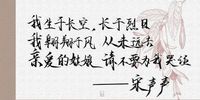 我生于长空，长于烈日
我翱翔于风 从未远去
亲爱的姑娘 请不要为我哭泣
——宋声声